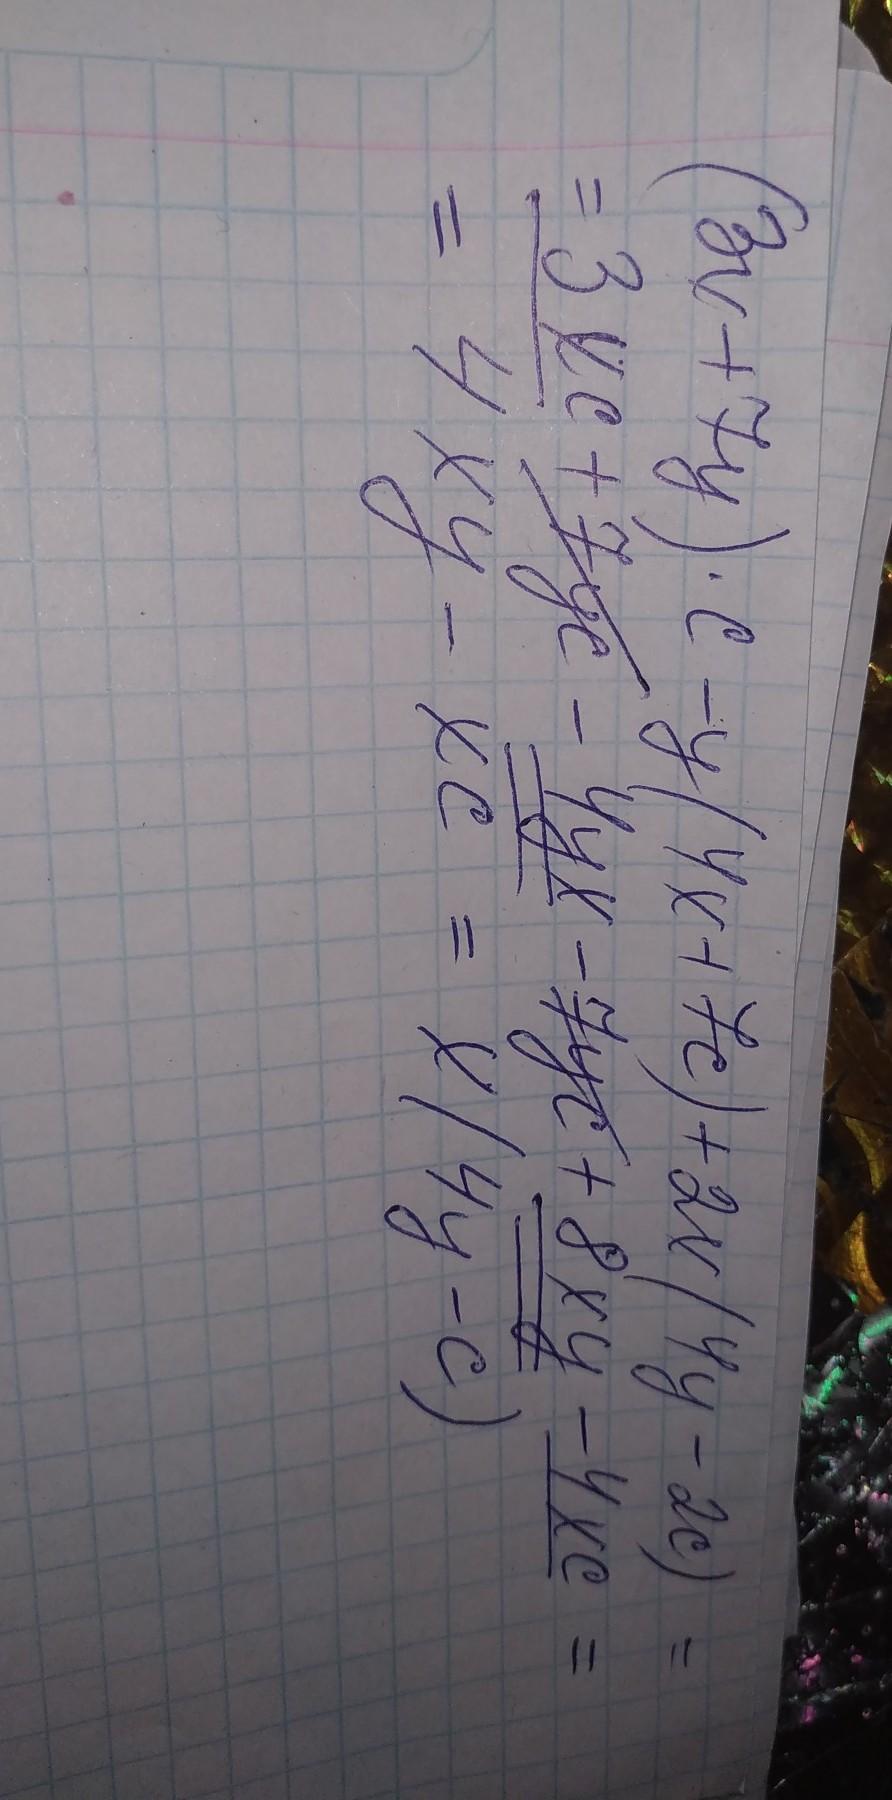 (3x+7y)·c-y(4x+7c)+2x(4y-2c)=
=3xc+7yc-4yx-7yc+8xy-4xc=
=4xy-xc=x(4y-c)